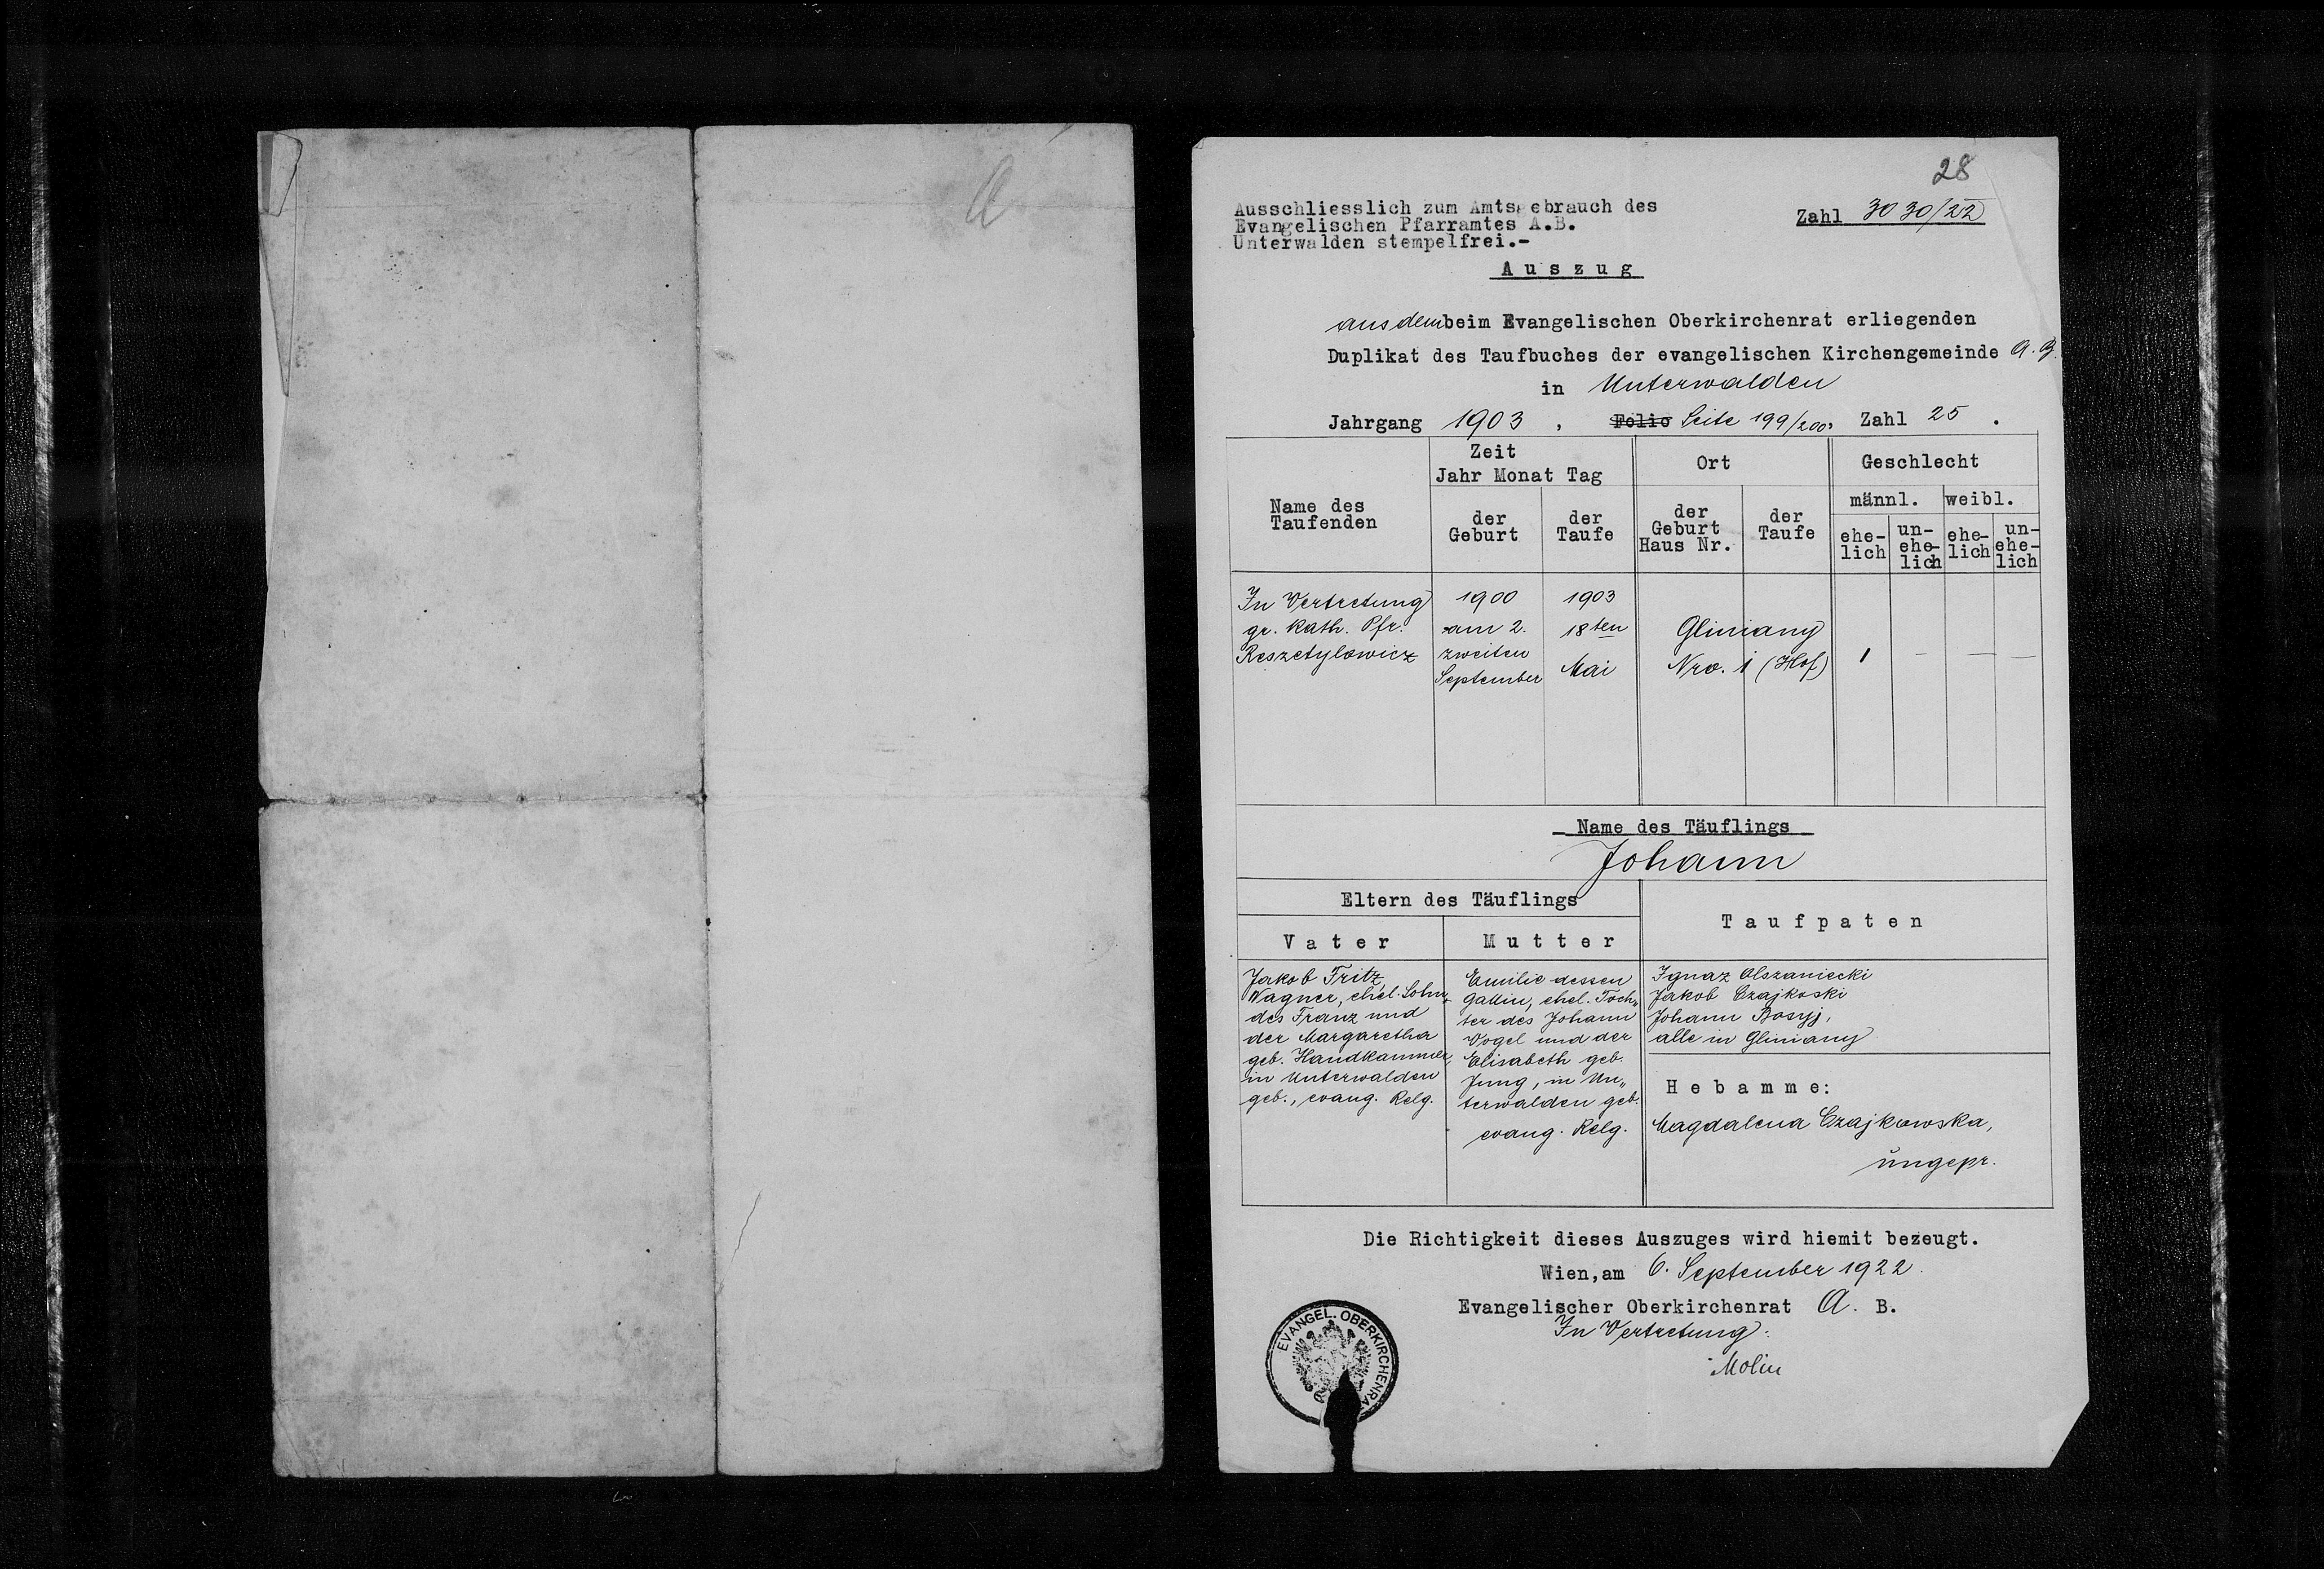 a
28
Ausschliesslich zum Amtsgebrauch des
Evangelischen Pfarramtes A.B.
Unterwalden stempelfrei.-
Zahl 3030/22
Auszug
aus dem beim Evangelischen Oberkirchenrat erliegenden
Duplikat des Taufbuches der evangelischen Kirchengemeinde A. B.
in Unterwalden
Jahrgang 1903 , Folio Seite 199/200. Zahl 25 .
Name des Taufenden
Zeit
Jahr Monat Tag
der Geburt
der Taufe
Ort
der Geburt Haus Nr.
der Taufe
Geschlecht
männl. weibl.
ehe-lich
un-ehe-lich
ehe-lich
un-ehe-lich
In Vertretung
gr. kath. Pfr.
Reszetylowicz
1900
am 2.
zweiten
September
1903
18ten
Mai
Gliniany
Nro. 1 (Hof)
1 - - -
Name des Täuflings
Johann
Eltern des Täuflings
Vater
Mutter
Taufpaten
Jakob Fritz,
Wagner, ehel. Sohn
des Franz und
der Margaretha
geb. Handkammer,
in Unterwalden
geb., evang. Relg.
Emilie dessen
Gattin, ehel. Toch„
ter des Johann
Vogel und der
Elisabeth geb.
Jung, in Un„
terwalden geb.
evang. Relg.
Ignaz Olszaniecki
Jakob Czajkoski
Johann Bosyj,
alle in Gliniany
Hebamme:
Magdalena Czajkowska,
ungepr.
Die Richtigkeit dieses Auszuges wird hiemit bezeugt.
Wien,am 6. September 1922.
Evangelischer Oberkirchenrat A. B.
In Vertretung:
Molin
EVANGEL. OBERKIRCHENRA